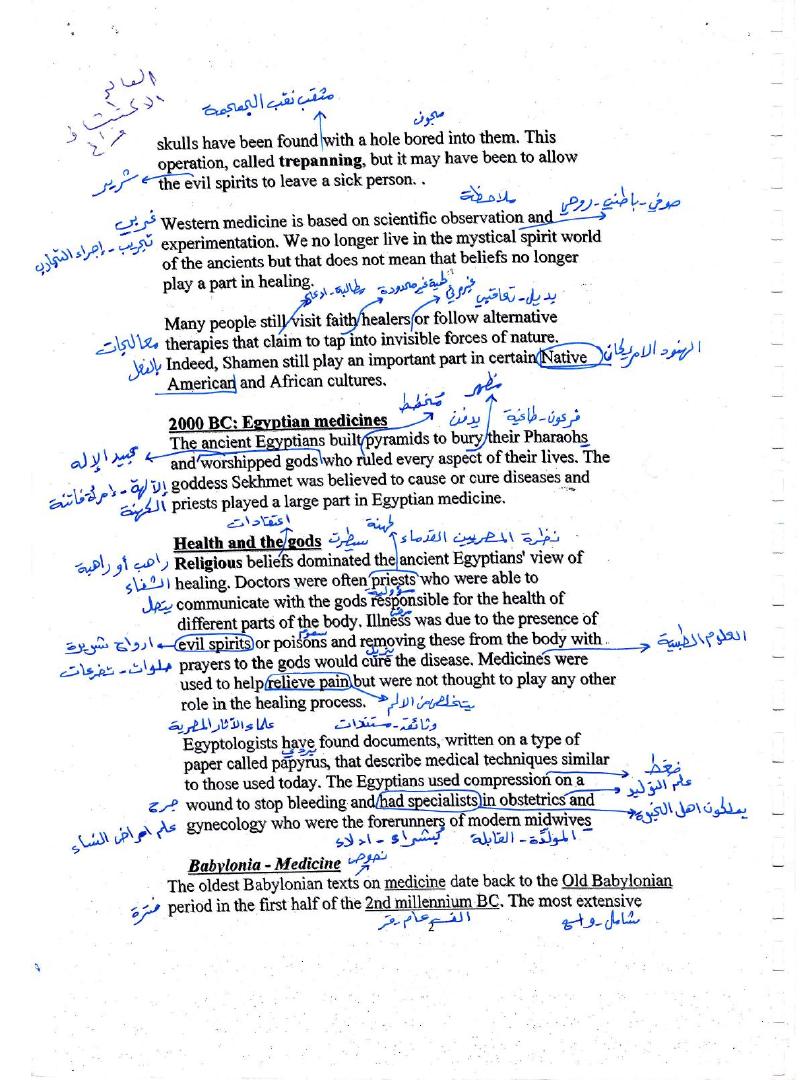 العالم
مثقب نقب الجمجمة
مجوف
skulls have been found with a hole bored into them. This
operation, called trepanning, but it may have been to allow
the evil spirits to leave a sick person. .
شرير
ملاحظة
صوفي - باطني - روحي
Western medicine is based on scientific observation and
غربي
experimentation. We no longer live in the mystical spirit world
تجريب - إجراء التجارب
of the ancients but that does not mean that beliefs no longer
play a part in healing.
Many people still visit faith healers or follow alternative
therapies that claim to tap into invisible forces of nature.
معالجات
الهنود الامريكان
Indeed, Shamen still play an important part in certain Native
بالفعل
American and African cultures.
2000 BC: Egyptian medicines
يدفن
فرعون - طاغية
The ancient Egyptians built pyramids to bury their Pharaohs
and worshipped gods who ruled every aspect of their lives. The
goddess Sekhmet was believed to cause or cure diseases and
الآلهة - امرأة فاتنة
priests played a large part in Egyptian medicine.
الكهنة
اعتقادات
Health and the gods
سيطرت
كهنة
نظرة المصريون القدماء
Religious beliefs dominated the ancient Egyptians' view of
راهب أو راهبة
healing. Doctors were often priests who were able to
الشفاء
communicate with the gods responsible for the health of
يتصل
different parts of the body. Illness was due to the presence of
evil spirits or poisons and removing these from the body with
ارواح شريرة
العلوم الطبية
prayers to the gods would cure the disease. Medicines were
صلوات - تضرعات
used to help relieve pain but were not thought to play any other
role in the healing process.
يتخلص من الالم
علماء الآثار المصرية
وثائق - مستندات
Egyptologists have found documents, written on a type of
paper called papyrus, that describe medical techniques similar
بردي
ضغط
to those used today. The Egyptians used compression on a
علم التوليد
wound to stop bleeding and had specialists in obstetrics and
جرح
يملكون اهل الخبرة
gynecology who were the forerunners of modern midwives
علم امراض النساء
المولدة - القابلة
Babylonia - Medicine
نصوص
The oldest Babylonian texts on medicine date back to the Old Babylonian
period in the first half of the 2nd millennium BC. The most extensive
فترة
شامل - واسع
2